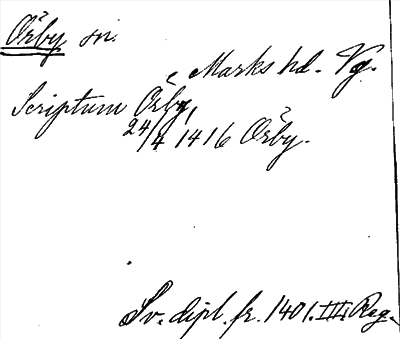 Örby sn.
Marks hd. Vg.
Scriptum Örby,
24/4 1416 Örby.
Sv. dipl. fr. 1401. III. Reg.